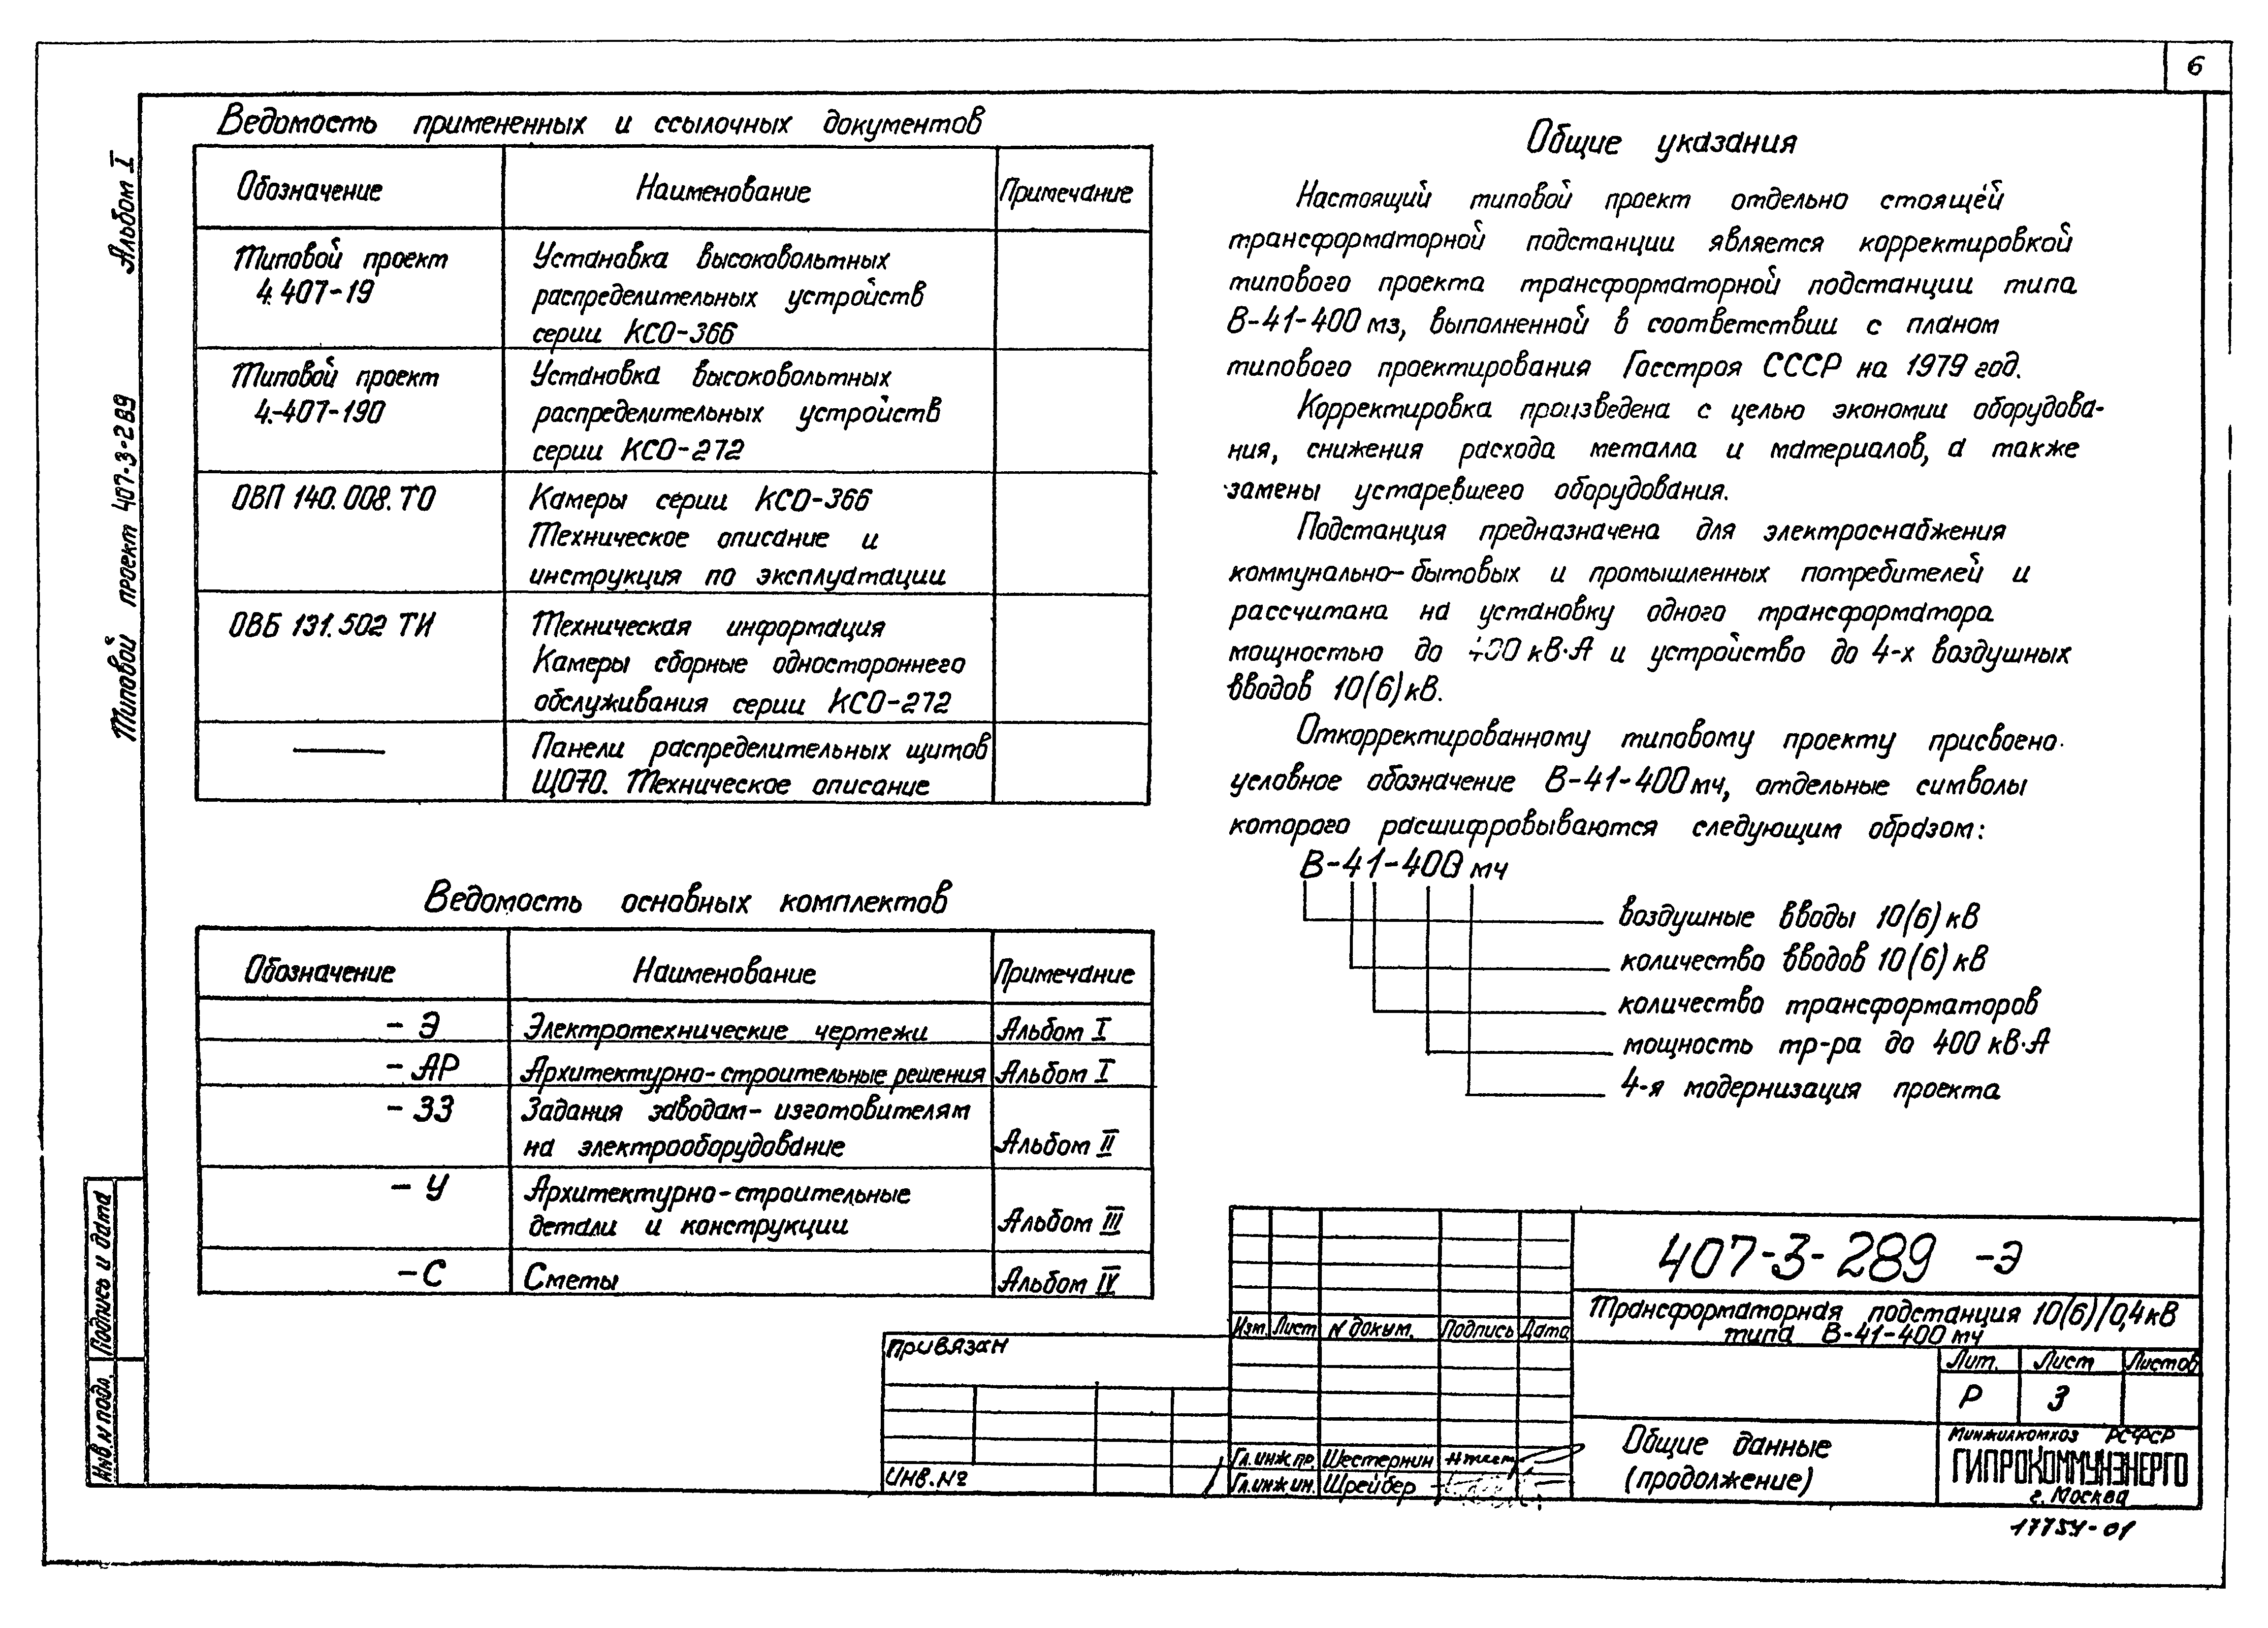 6
Альбом I
Типовой проект 407-3-289
Подпись и дата
Инв. N подл.
Ведомость примененных и ссылочных документов
Обозначение Наименование Примечание
Типовой проект
4.407-19
Установка высоковольтных
распределительных устройств
серии КСО-366
Типовой проект
4-407-190
Установка высоковольтных
распределительных устройств
серии КСО-272
ОВП 140.008.ТО
Камеры серии КСО-366
Техническое описание и
инструкция по эксплуатации
ОВБ 131.502 ТИ
Техническая информация
Камеры сборные одностороннего
обслуживания серии КСО-272
Панели распределительных щитов
ЩО70. Техническое описание
Ведомость основных комплектов
Обозначение Наименование Примечание
- Э Электротехнические чертежи Альбом I
- АР Архитектурно-строительные решения Альбом I
- ЗЗ Задания заводам-изготовителям
на электрооборудование Альбом II
- У Архитектурно-строительные
детали и конструкции Альбом III
- С Сметы Альбом IV
Общие указания
Настоящий типовой проект отдельно стоящей
трансформаторной подстанции является корректировкой
типового проекта трансформаторной подстанции типа
В-41-400 мз, выполненной в соответствии с планом
типового проектирования Госстроя СССР на 1979 год.
Корректировка произведена с целью экономии оборудова-
ния, снижения расхода металла и материалов, а также
замены устаревшего оборудования.
Подстанция предназначена для электроснабжения
коммунально-бытовых и промышленных потребителей и
рассчитана на установку одного трансформатора
мощностью до 400 кВ·А и устройство до 4-х воздушных
вводов 10(6) кВ.
Откорректированному типовому проекту присвоено
условное обозначение В-41-400 мч, отдельные символы
которого расшифровываются следующим образом:
В-41-400 мч
воздушные вводы 10(6) кВ
количество вводов 10(6) кВ
количество трансформаторов
мощность тр-ра до 400 кВ·А
4-я модернизация проекта
привязан
инв. №
Изм. Лист N докум. Подпись Дата
Гл. инж пр. Шестернин
Гл. инж ин. Шрейбер
407-3-289 -Э
Трансформаторная подстанция 10(6)/0,4кВ
типа В-41-400 мч
Лит. Лист Листов
Р 3
Общие данные
(продолжение)
Минжилкомхоз РСФСР
ГИПРОКОММУНЭНЕРГО
г. Москва
17754-01